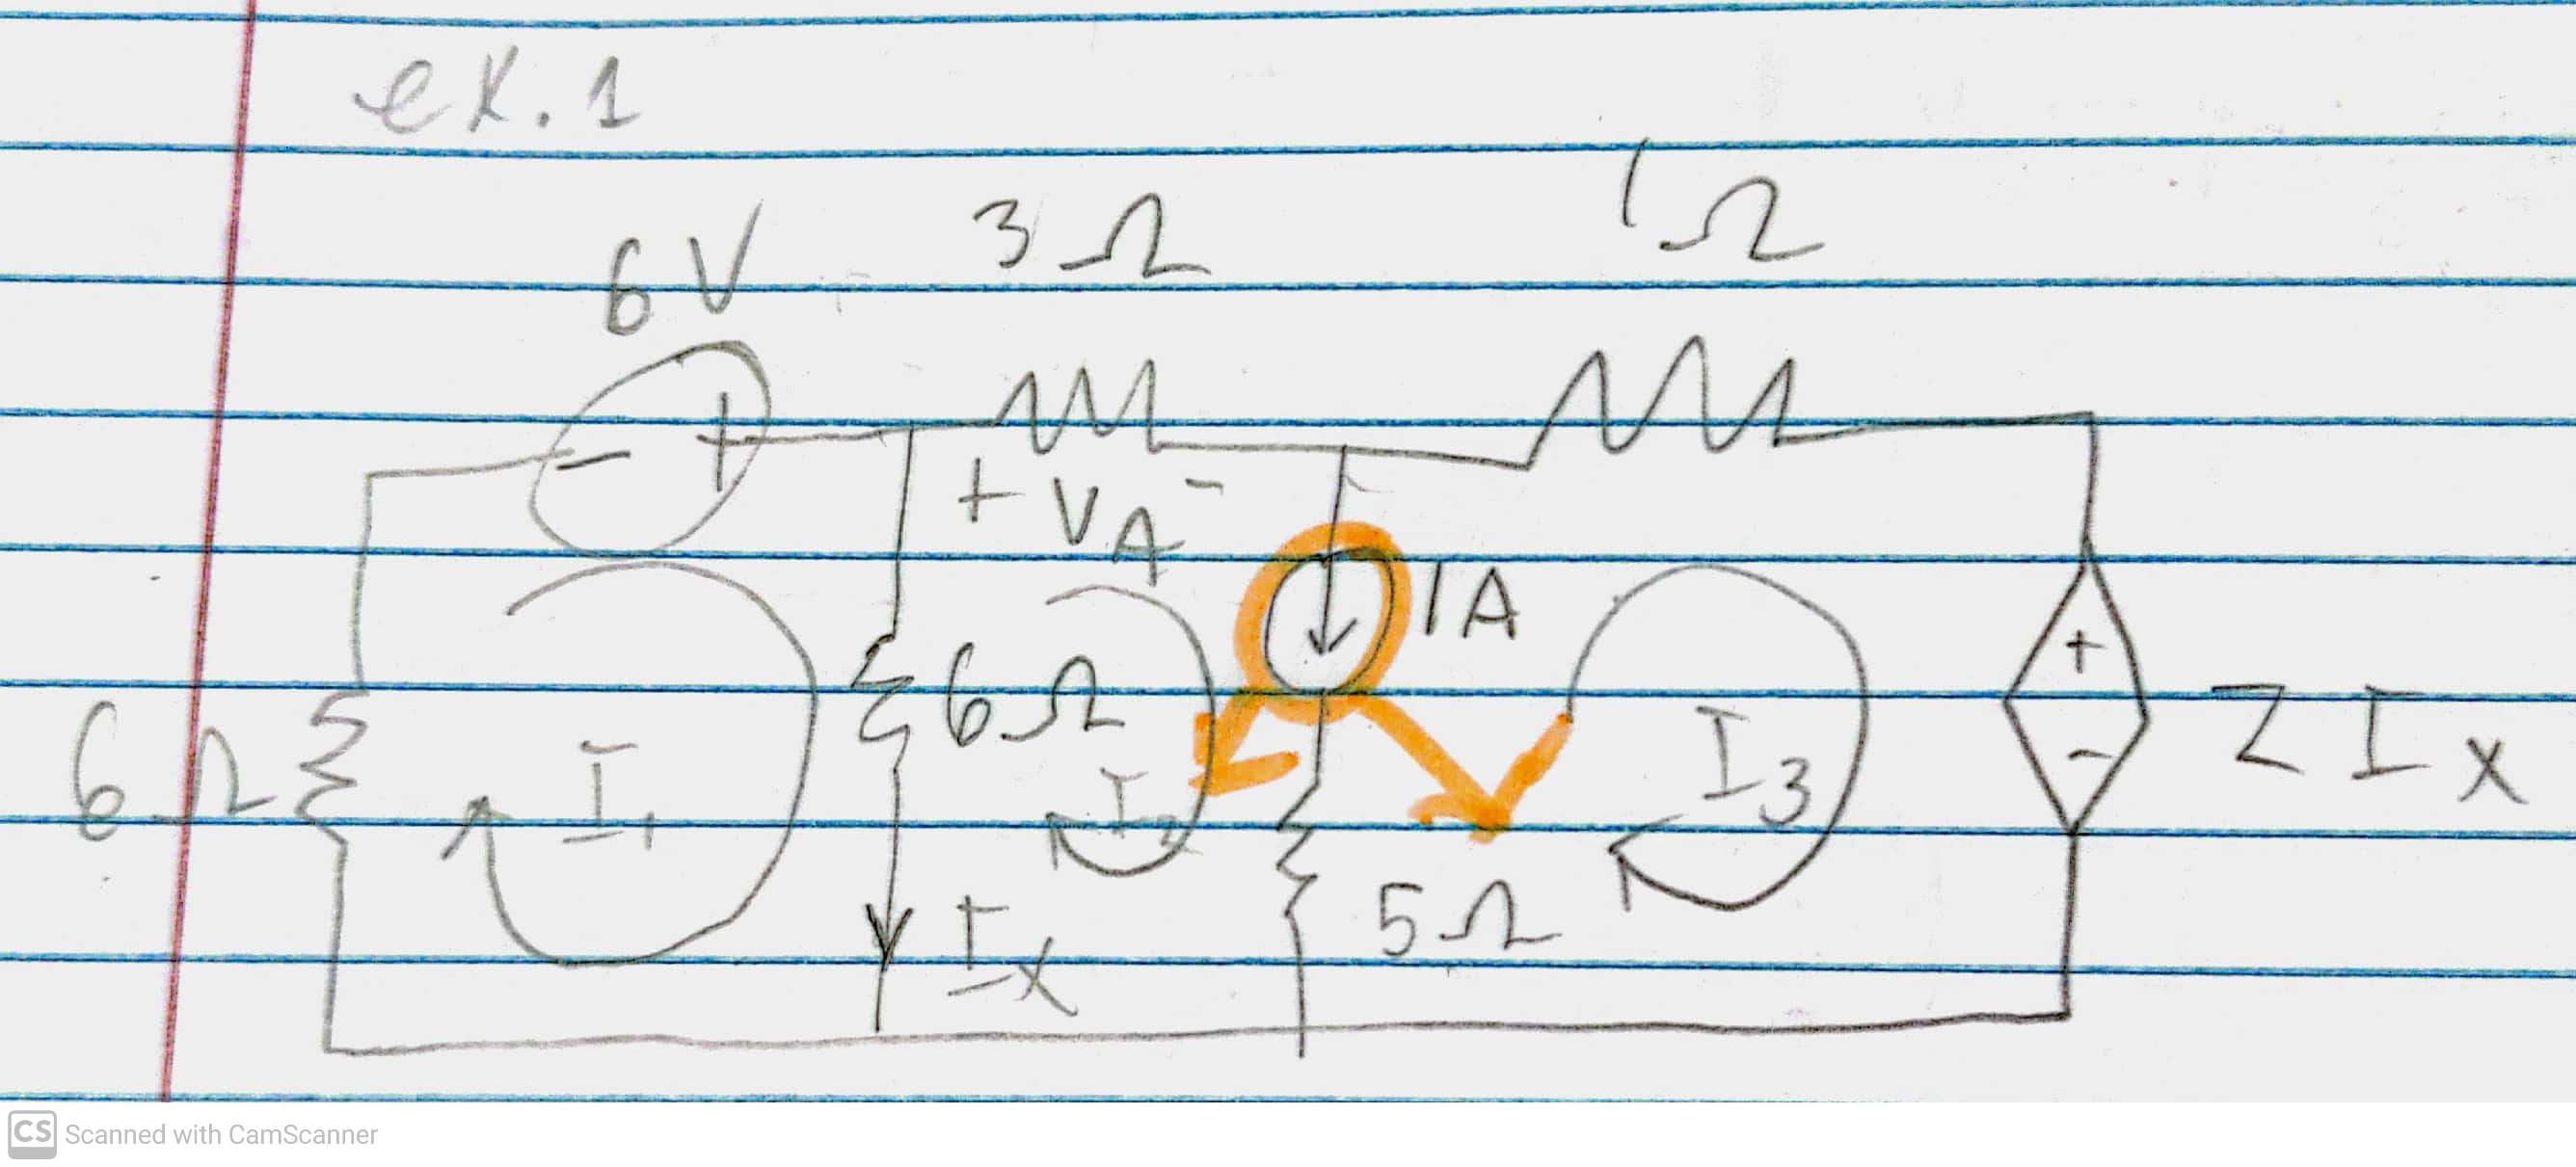 ex. 1
6V 3Ω 1Ω
- +
+ VA -
1A
6Ω I1 6Ω I2 I3 + - 2Ix
Ix 5Ω
CS Scanned with CamScanner